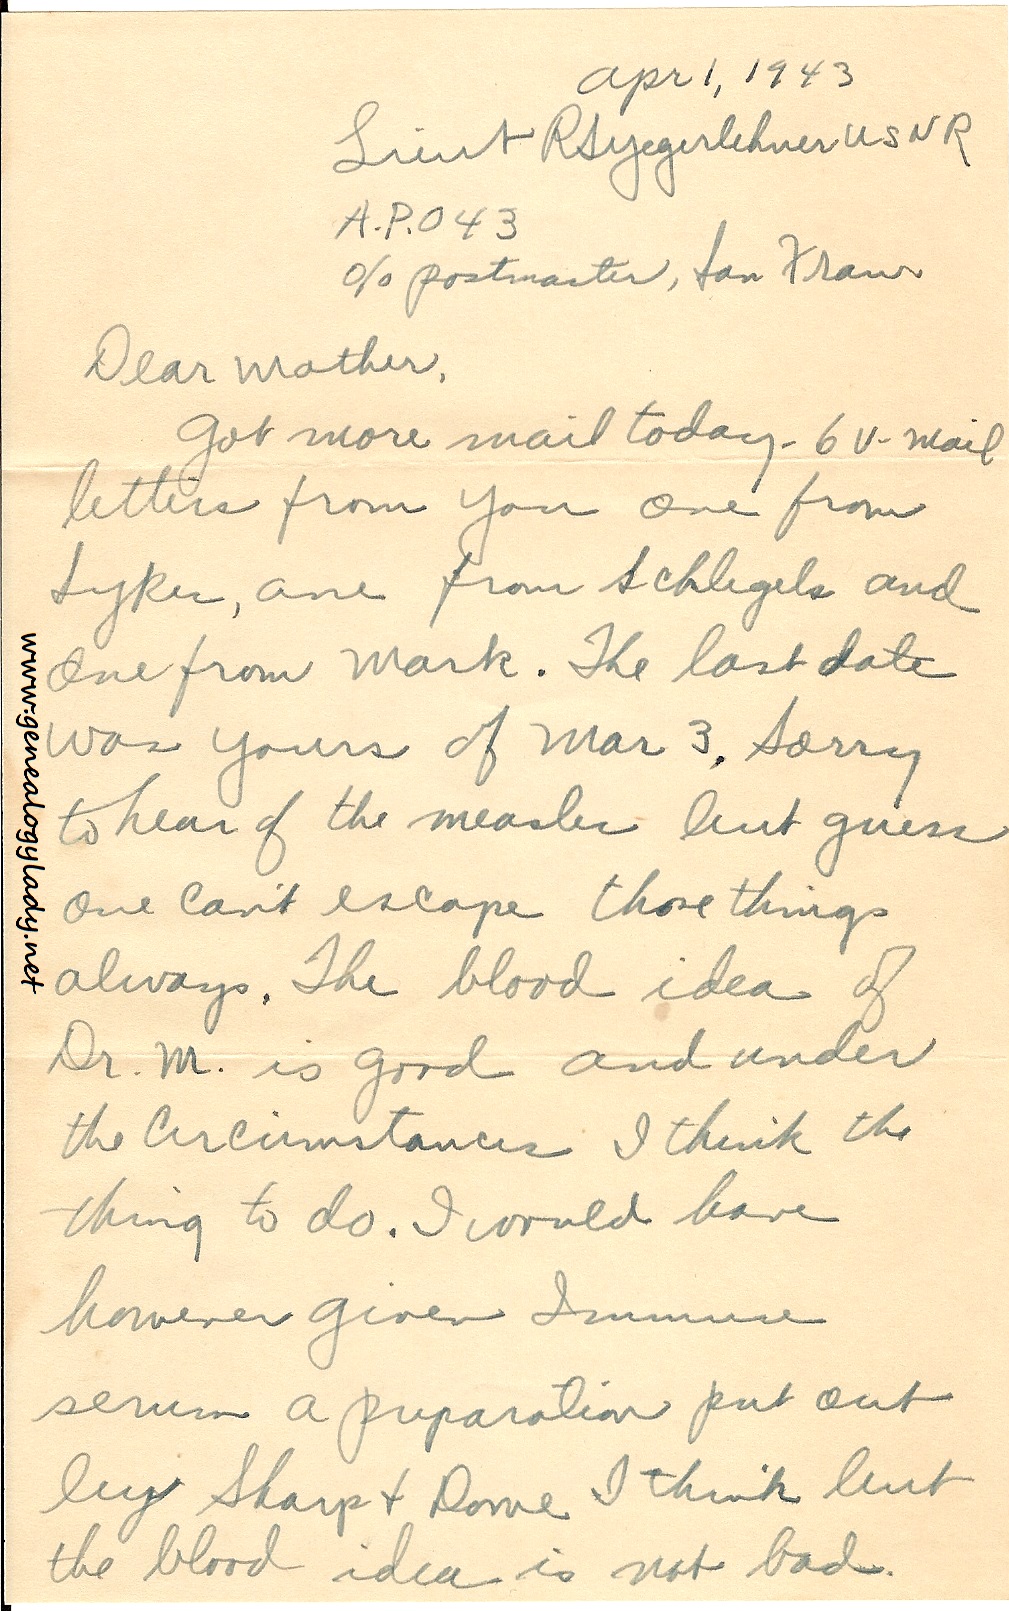 Apr 1, 1943
Lieut RSYegerlehner USNR
A.P.O 43
c/o postmaster, San Fran
Dear Mother,
Got more mail today - 6 V-mail
letters from you one from
Syker, one from Schlegels and
one from Mark. The last date
was yours of Mar 3. Sorry
to hear of the measles but guess
one can't escape those things
always. The blood idea of
Dr. M. is good and under
the circumstances I think the
thing to do. I would have
however given Immune
serum a preparation put out
by Sharp + Dome I think but
the blood idea is not bad.
www.genealogylady.net